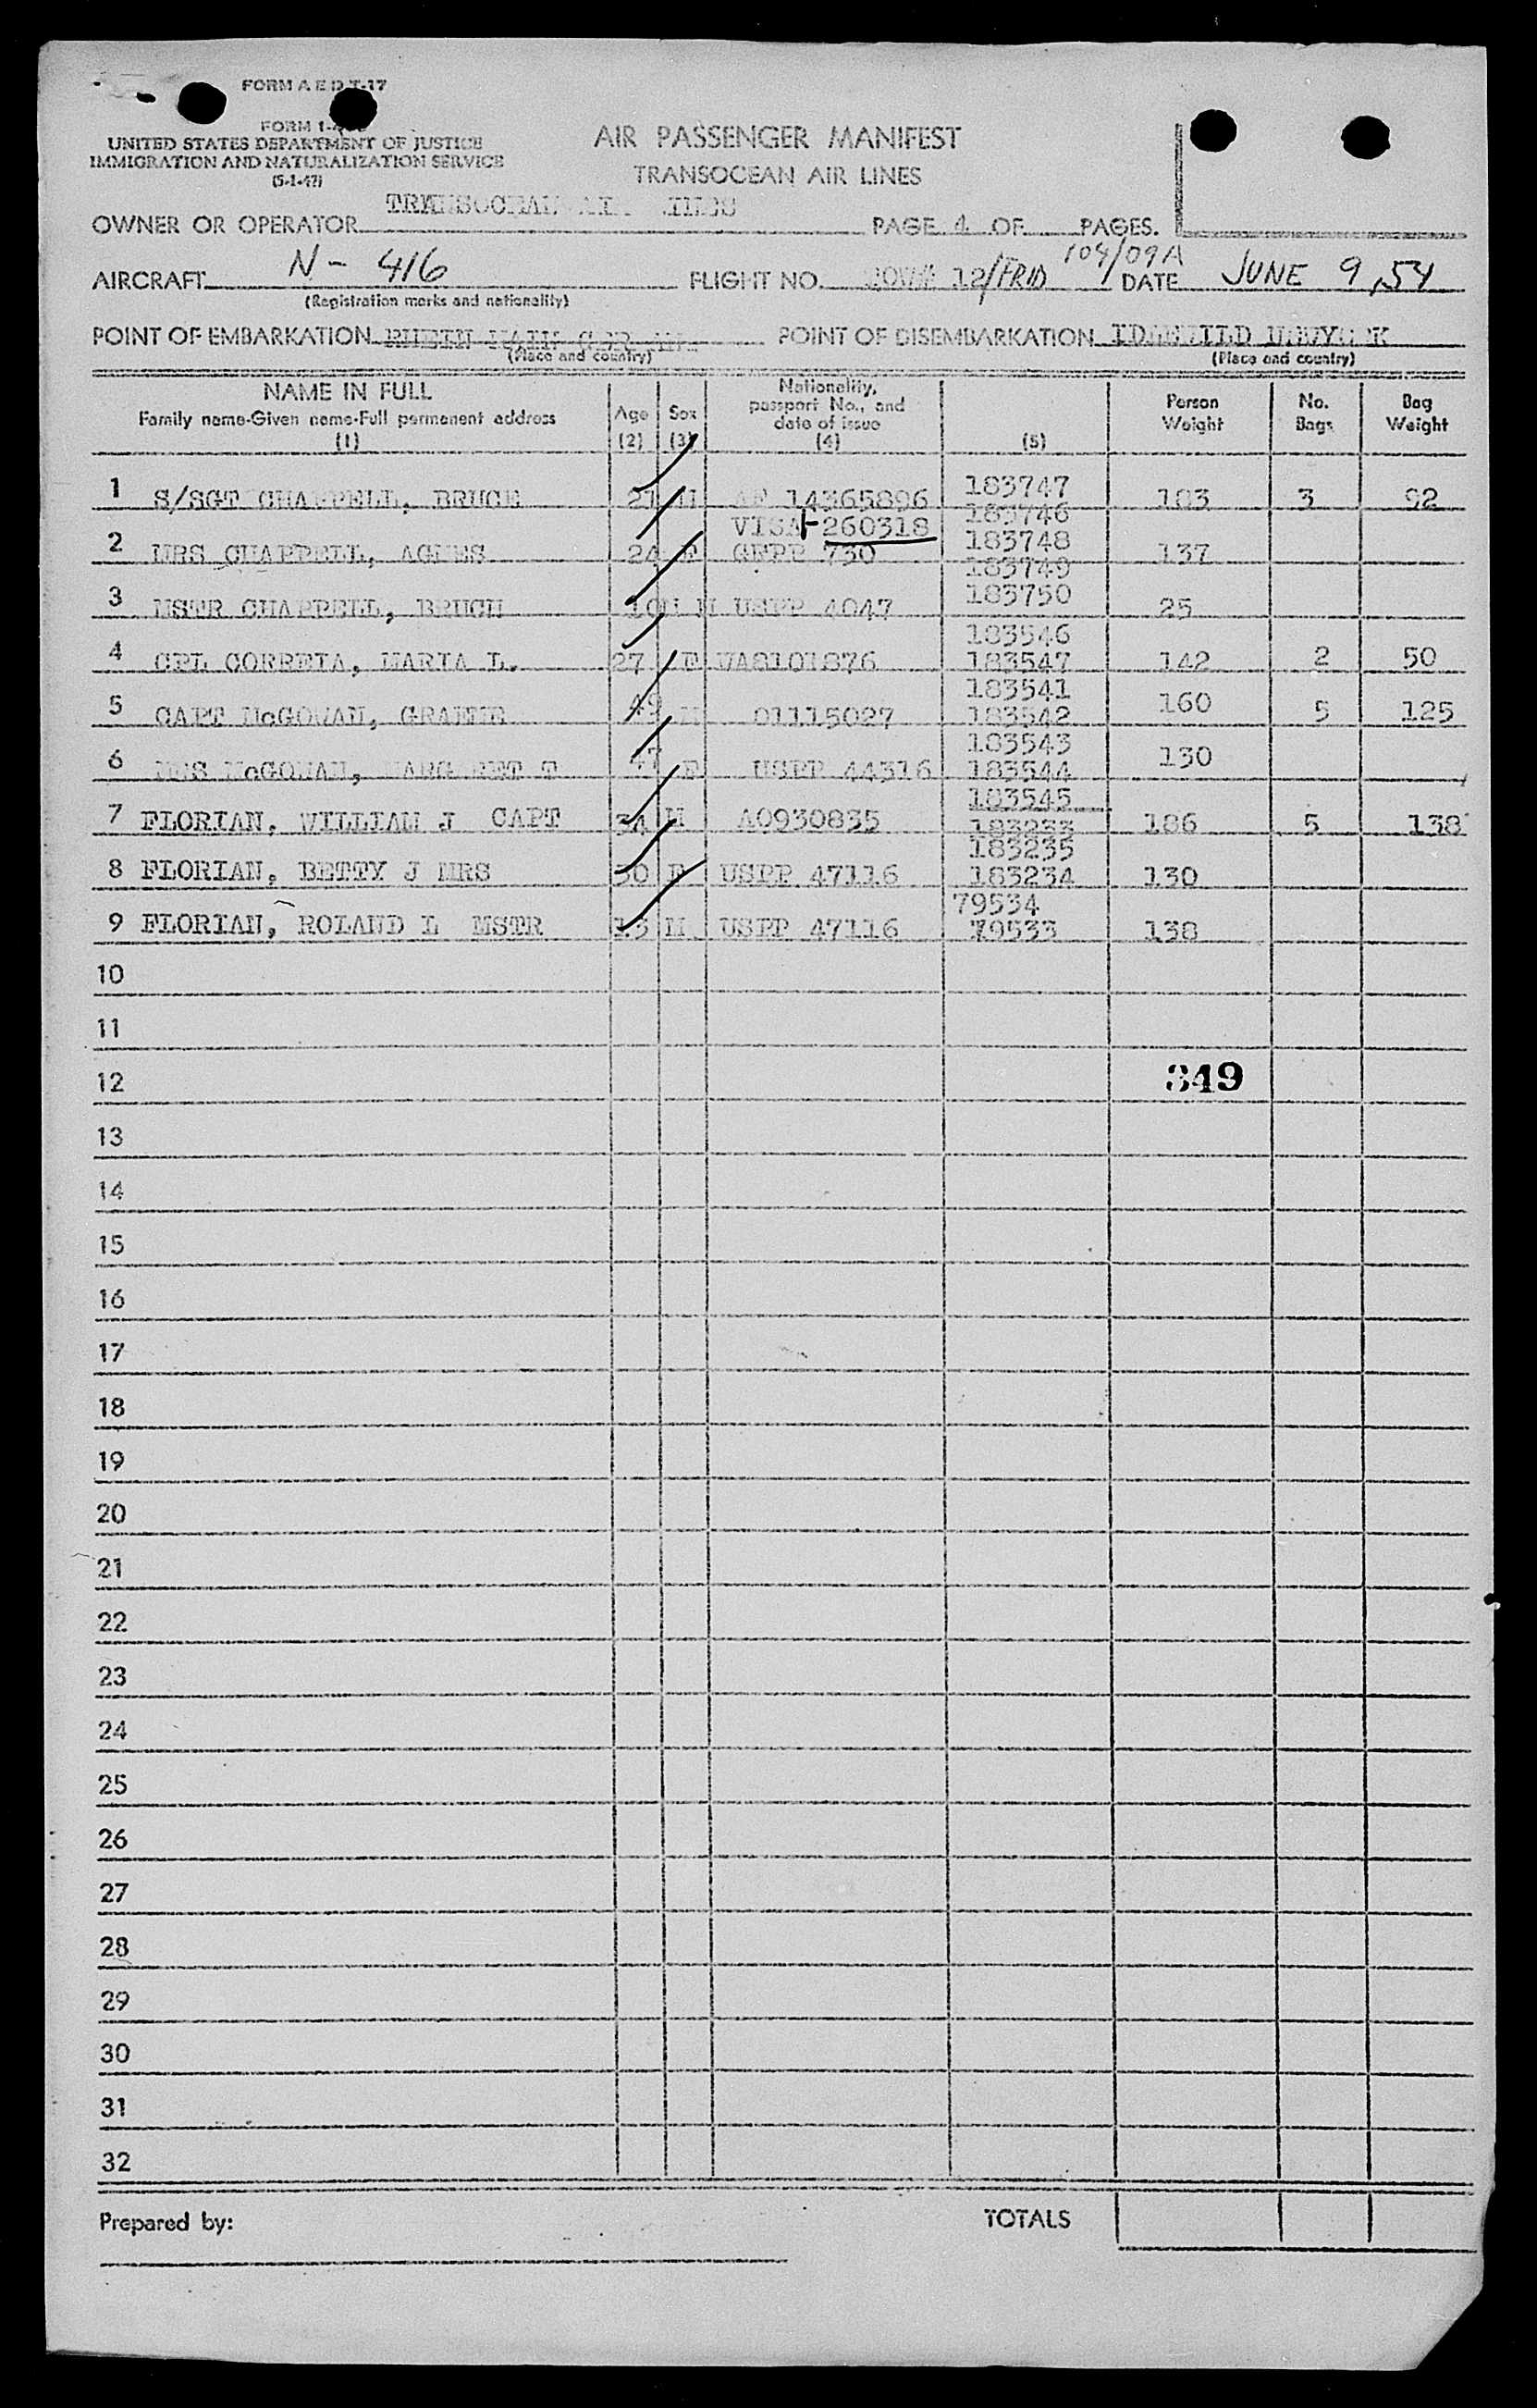 FORM A E D T-17
FORM 1-
UNITED STATES DEPARTMENT OF JUSTICE
IMMIGRATION AND NATURALIZATION SERVICE
(5-1-47)
AIR PASSENGER MANIFEST
TRANSOCEAN AIR LINES
OWNER OR OPERATOR TRANSOCEAN AIR LINES PAGE 4 OF PAGES.
104/09A
AIRCRAFT N-416 FLIGHT NO. 12/FRID DATE JUNE 9, 54
(Registration marks and nationality)
POINT OF EMBARKATION RHEIN MAIN POINT OF DISEMBARKATION IDLEWILD NEWYORK
(Place and country) (Place and country)
NAME IN FULL
Family name-Given name-Full permanent address
(1)
Age
(2)
Sex
(3)
Nationality,
passport No., and
date of issue
(4)
(5)
Person
Weight
No.
Bags
Bag
Weight
1 S/SGT CHAPPELL, BRUCE 27 M AF 14365896 183747 183 3 92
183746
VISA 260318
2 MRS CHAPPELL, AGNES 24 F GEPP 730 183748 137
183749
3 MSTR CHAPPELL, BRUCH 10M M USPP 4047 183750 25
183546
4 CPL CORREIA, MARIA L. 27 F WA8101876 183547 142 2 50
183541
5 CAPT McGOWAN, 49 M 01115027 183542 160 5 125
183543
6 MRS McGOWAN, MARGARET T 47 F USPP 44316 183544 130
183545
7 FLORIAN, WILLIAM J CAPT 34 M AO930835 183233 186 5 138
183235
8 FLORIAN, BETTY J MRS 30 F USPP 47116 183234 130
79534
9 FLORIAN, ROLAND L MSTR 13 M USPP 47116 79533 138
10
11
12 349
13
14
15
16
17
18
19
20
21
22
23
24
25
26
27
28
29
30
31
32
Prepared by: TOTALS